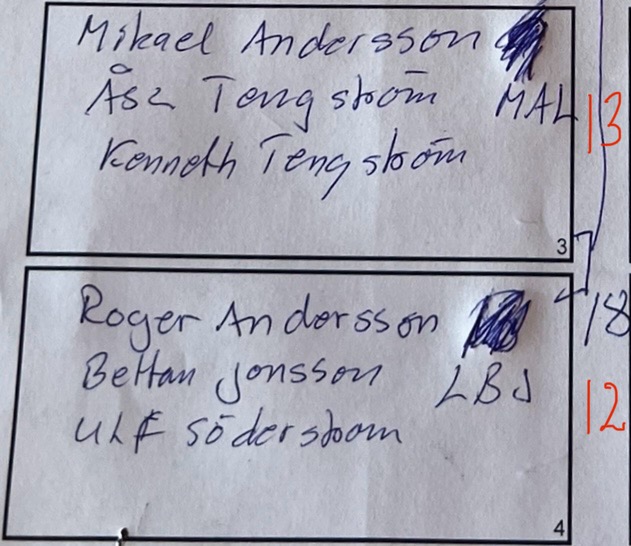 Mikael Andersson
Åsa Tengström MAL 13
Kenneth Tengström
3
Roger Andersson 18
Bettan Jonsson LBJ 12
Ulf Söderström
4